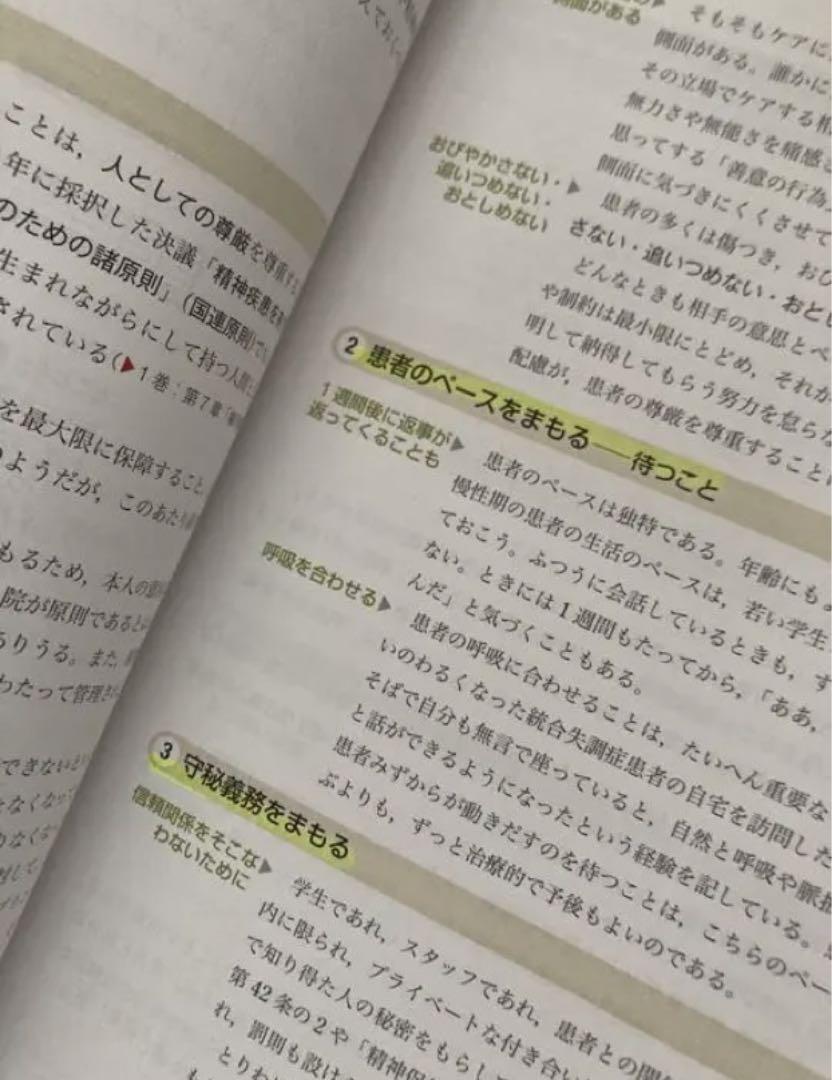 ことは，人としての尊厳を尊重す
年に採択した決議「精神疾患を
のための諸原則」(国連原則)で
生まれながらにして持つ人間
されている(▶1巻：第7章
を最大限に保障すること，
のようだが，このあたり
もるため，本人の意
院が原則であると
ありうる。また，
わたって管理さ
できないと
となくなっ
のなくな
時間がある▶
そもそもケアに
側面がある。誰かに
その立場でケアする相
無力さや無能さを痛感
思ってする「善意の行為
側面に気づきにくくさせて
おびやかさない・
追いつめない・
おとしめない
▶患者の多くは傷つき，おび
さない・追いつめない・おと
どんなときも相手の意思とペ
や制約は最小限にとどめ，それが
明して納得してもらう努力を怠らな
配慮が，患者の尊厳を尊重することに
② 患者のペースをまもる──待つこと
1週間後に返事が
返ってくることも▶
患者のペースは独特である。年齢にも
慢性期の患者の生活のペースは，若い学生
ておこう。ふつうに会話しているときも，す
ない。ときには1週間もたってから，「ああ，
んだ」と気づくこともある。
呼吸を合わせる▶
患者の呼吸に合わせることは，たいへん重要な
いのわるくなった統合失調症患者の自宅を訪問した
そばで自分も無言で座っていると，自然と呼吸や脈拍
と話ができるようになったという経験を記している。
患者みずからが動きだすのを待つことは，こちらのペー
ぶよりも，ずっと治療的で予後もよいのである。
③ 守秘義務をまもる
信頼関係をそこな
わないために▶
学生であれ，スタッフであれ，患者との関
内に限られ，プライベートな付き合い
で知り得た人の秘密をもらし
第42条の2や「精神保
れ，罰則も設け
とりわ
も